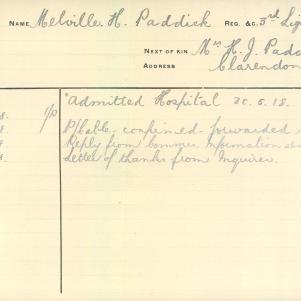 NAME Melville. H. Paddick REG. &C. 3rd Lig
NEXT OF KIN Mrs H. J. Padd
ADDRESS Clarendon
"Admitted Hospital 20.5.18.
P/Cable - confirmed - forwarded
Reply from Commrs. Information sen
Letter of thanks from Inquirer.